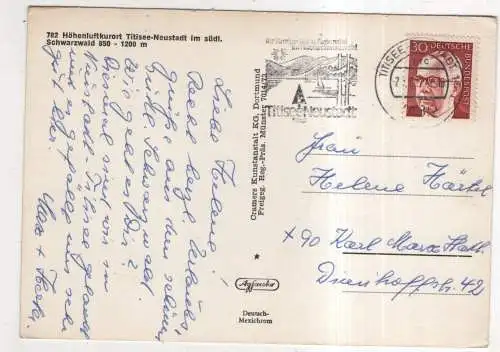 782 Höhenluftkurort Titisee-Neustadt im südl.
Schwarzwald 850 - 1200 m
Liebe Helene!
Recht herzl. Urlaubs-
grüße aus dem schönen
Schwarzwald.
Wie geht es Dir?
Diesmal sind wir in
Neustadt-Titisee gelandet
uns gefällt uns sehr
gut hier.
Max +
Cramers Kunstanstalt KG, Dortmund
Freigeg. Reg.-Präs. Münster
Agfacolor
Deutsch-
Mexichrom
Titisee-Neustadt
TITISEE
30 DEUTSCHE BUNDESPOST
Frau
Helene Härtel
x 90 Karl Marx Stadt
42